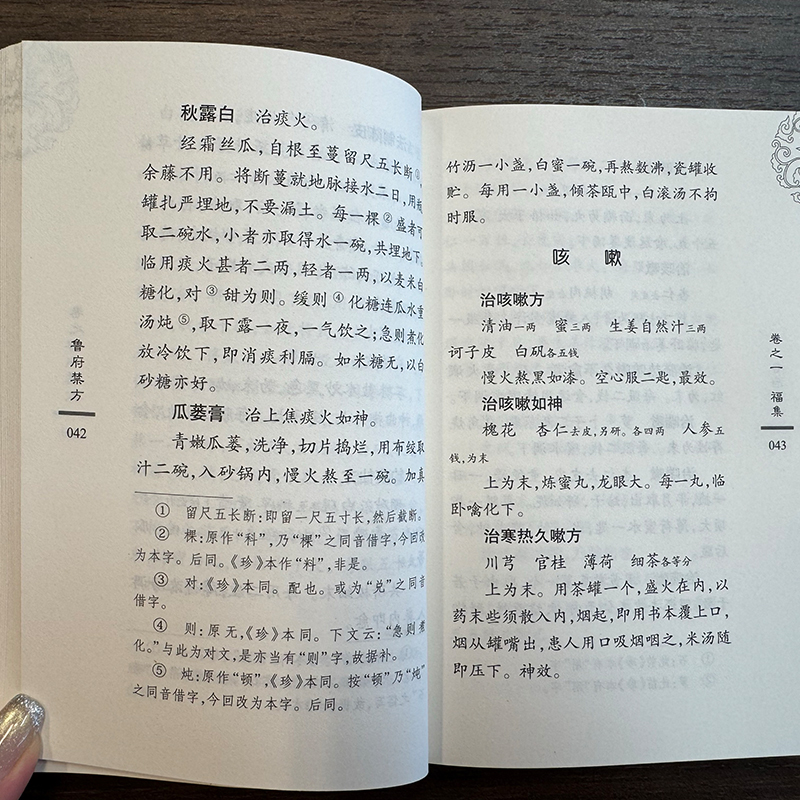 秋露白　治痰火。
经霜丝瓜，自根至蔓留尺五长断①，
余藤不用。将断蔓就地脉接水二日，用瓶
罐扎严埋地，不要漏土。每一棵②盛者可
取二碗水，小者亦取得水一碗，共埋地下。
临用痰火甚者二两，轻者一两，以麦米白
糖化，对③甜为则。缓则④化糖连瓜水重
汤炖⑤，取下露一夜，一气饮之；急则煮化
放冷饮下，即消痰利膈。如米糖无，以白
砂糖亦好。
瓜蒌膏　治上焦痰火如神。
青嫩瓜蒌，洗净，切片捣烂，用布绞取
汁二碗，入砂锅内，慢火熬至一碗。加真
①　留尺五长断：即留一尺五寸长，然后截断。
②　棵：原作“科”，乃“棵”之同音借字，今回改
为本字。后同。《珍》本作“料”，非是。
③　对：《珍》本同。配也。或为“兑”之同音
借字。
④　则：原无，《珍》本同。下文云：“急则煮
化。”与此为对文，是亦当有“则”字，故据补。
⑤　炖：原作“顿”，《珍》本同。按“顿”乃“炖”
之同音借字，今回改为本字。后同。
鲁府禁方
042
竹沥一小盏，白蜜一碗，再熬数沸，瓷罐收
贮。每用一小盏，倾茶瓯中，白滚汤不拘
时服。
咳　嗽
治咳嗽方
清油一两　蜜三两　生姜自然汁三两
诃子皮　白矾各五钱
慢火熬黑如漆。空心服二匙，最效。
治咳嗽如神
槐花　杏仁去皮，另研。各四两　人参五
钱，为末
上为末，炼蜜丸，龙眼大。每一丸，临
卧噙化下。
治寒热久嗽方
川芎　官桂　薄荷　细茶各等分
上为末。用茶罐一个，盛火在内，以
药末些须散入内，烟起，即用书本覆上口，
烟从罐嘴出，患人用口吸烟咽之，米汤随
即压下。神效。
卷之一　福集
043